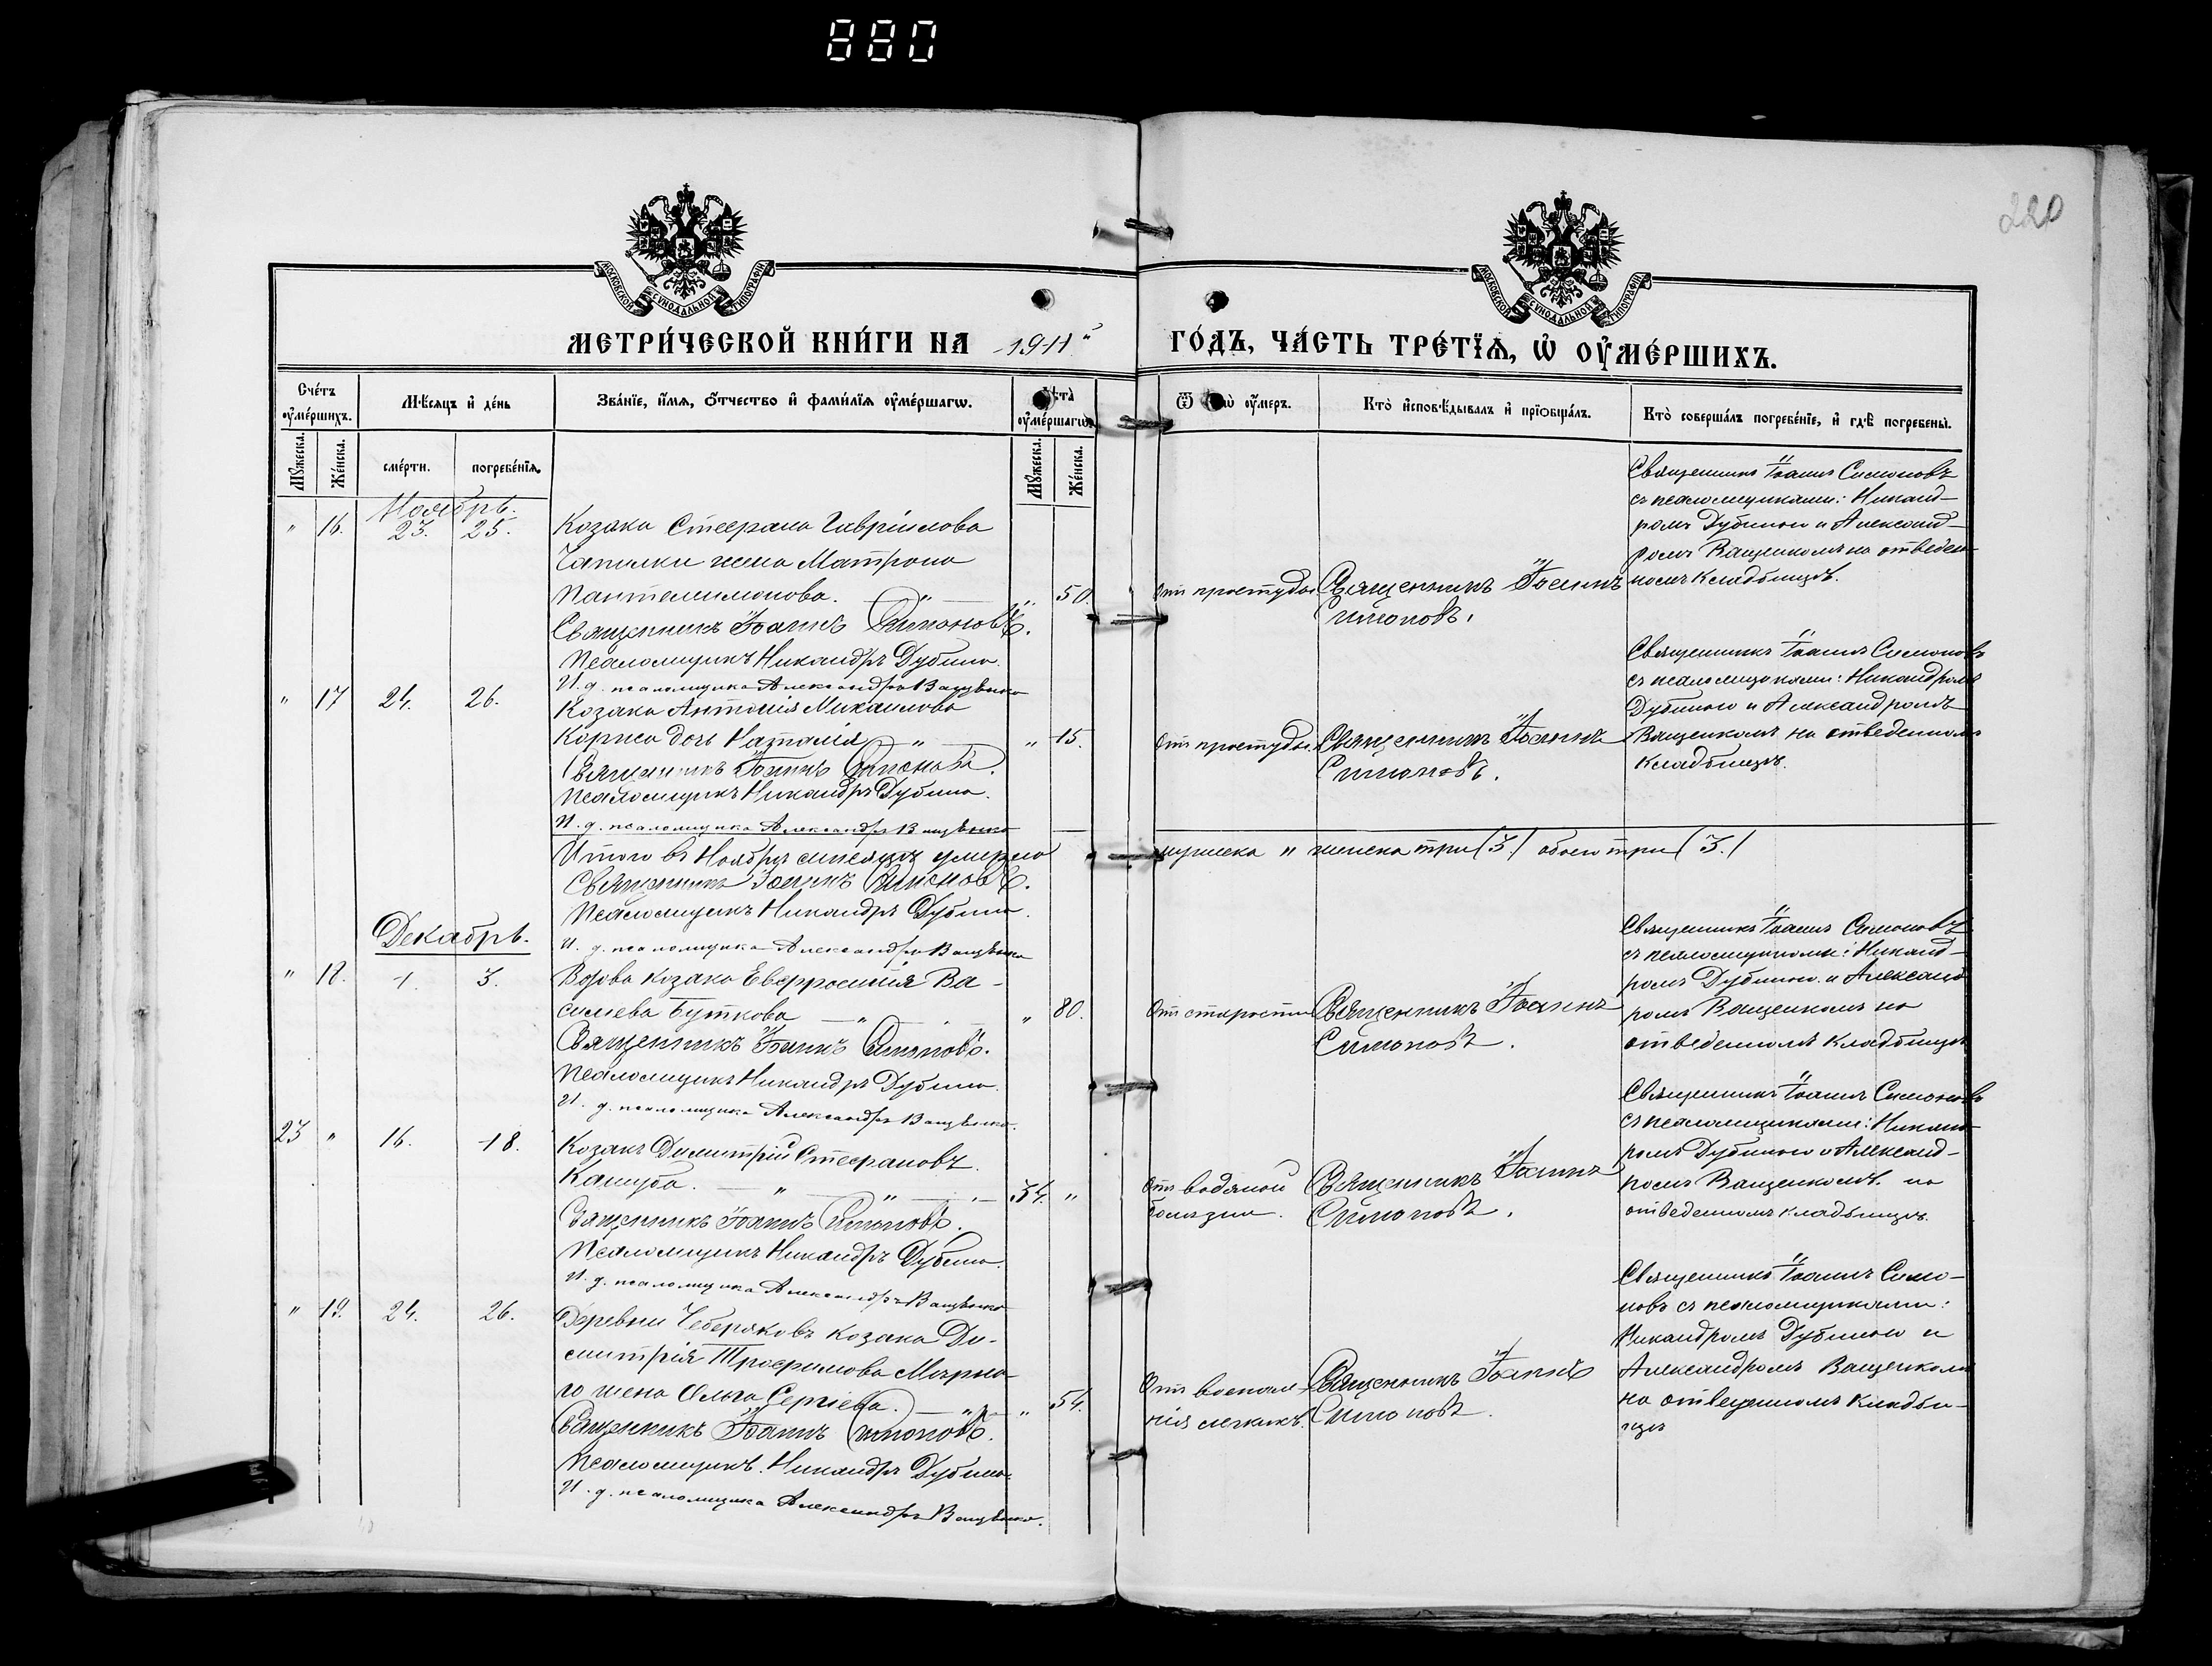 880
220
МОСКОВСКОЙ СѴНОДАЛЬНОЙ ТИПОГРАФІИ
МОСКОВСКОЙ СѴНОДАЛЬНОЙ ТИПОГРАФІИ
МЕТРИ́ЧЕСКОЙ КНИ́ГИ НА 1911 ГО́ДЪ, ЧА́СТЬ ТРЕ́ТЇѦ, Ѡ ОУ҆МЕ́РШИХЪ.
Сче́тъ оу҆ме́ршихъ.
Мѣ́сяцъ и҆ де́нь
Зва́нїе, и҆́мя, ѻ҆́тчество и҆ фами́лїя оу҆ме́ршагѡ.
Лѣта̀ оу҆ме́ршагѡ.
Ѿ чегѡ̀ оу҆́меръ.
Кто̀ и҆сповѣ́дывалъ и҆ прїѻбща́лъ.
Кто̀ соверша́лъ погребе́нїе, и҆ гдѣ̀ погребены̀.
Мꙋ́жеска.
Же́нска.
сме́рти.
погребе́нїя.
Мꙋ́жеска.
Же́нска.
Ноябрь.
" 16. 23. 25.
Козака Стефана Гавріилова
Чапилки жена Матрона
Пантелимонова. — " — " 50.
Священникъ Іоаннъ Симоновъ.
Псаломщикъ Никандръ Дубина.
И. д. псаломщика Александръ Ващенко
Отъ простуды
Священникъ Іоаннъ
Симоновъ.
Священникъ Іоаннъ Симоновъ
съ псаломщиками: Никанд-
ромъ Дубиною и Александ-
ромъ Ващенкомъ на отведен-
номъ кладбищѣ.
" 17 24. 26.
Козака Антонія Михаилова
дочь Наталія — " — " 15.
Священникъ Іоаннъ Симоновъ.
Псаломщикъ Никандръ Дубина.
И. д. псаломщика Александръ Ващенко
Отъ простуды.
Священникъ Іоаннъ
Симоновъ.
Священникъ Іоаннъ Симоновъ
съ псаломщиками: Никандромъ
Дубиною и Александромъ
Ващенкомъ на отведенномъ
кладбищѣ.
Итого въ Ноябрѣ мѣсяцѣ умерло
мужеска " женска три (3.) обоего три (3.)
Священникъ Іоаннъ Симоновъ.
Псаломщикъ Никандръ Дубина.
И. д. псаломщика Александръ Ващенко
Декабрь.
" 18. 1. 3.
Вдова козака Евфросинія Ва-
силева Буткова — " — " 80.
Священникъ Іоаннъ Симоновъ.
Псаломщикъ Никандръ Дубина.
И. д. псаломщика Александръ Ващенко.
Отъ старости
Священникъ Іоаннъ
Симоновъ.
Священникъ Іоаннъ Симоновъ
съ псаломщиками: Никанд-
ромъ Дубиною и Александ-
ромъ Ващенкомъ на
отведенномъ кладбищѣ
23 " 16. 18.
Козакъ Димитрій Стефановъ
— " — " — 34. "
Священникъ Іоаннъ Симоновъ.
Псаломщикъ Никандръ Дубина.
И. д. псаломщика Александръ Ващенко
Отъ водяной
болѣзни.
Священникъ Іоаннъ
Симоновъ.
Священникъ Іоаннъ Симоновъ
съ псаломщиками: Никанд-
ромъ Дубиною и Александ-
ромъ Ващенкомъ на
отведенномъ кладбищѣ.
" 19. 24. 26.
Деревни Чеберяковъ козака Ди-
митрія Трофимова Мирна-
го жена Ольга Сергіева. — " — " 54.
Священникъ Іоаннъ Симоновъ.
Псаломщикъ Никандръ Дубина.
И. д. псаломщика Александръ Ващенко.
Отъ воспале-
нія легкихъ.
Священникъ Іоаннъ
Симоновъ.
Священникъ Іоаннъ Симо-
новъ съ псаломщиками:
Никандромъ Дубиною и
Александромъ Ващенкомъ
на отведенномъ кладби-
щѣ